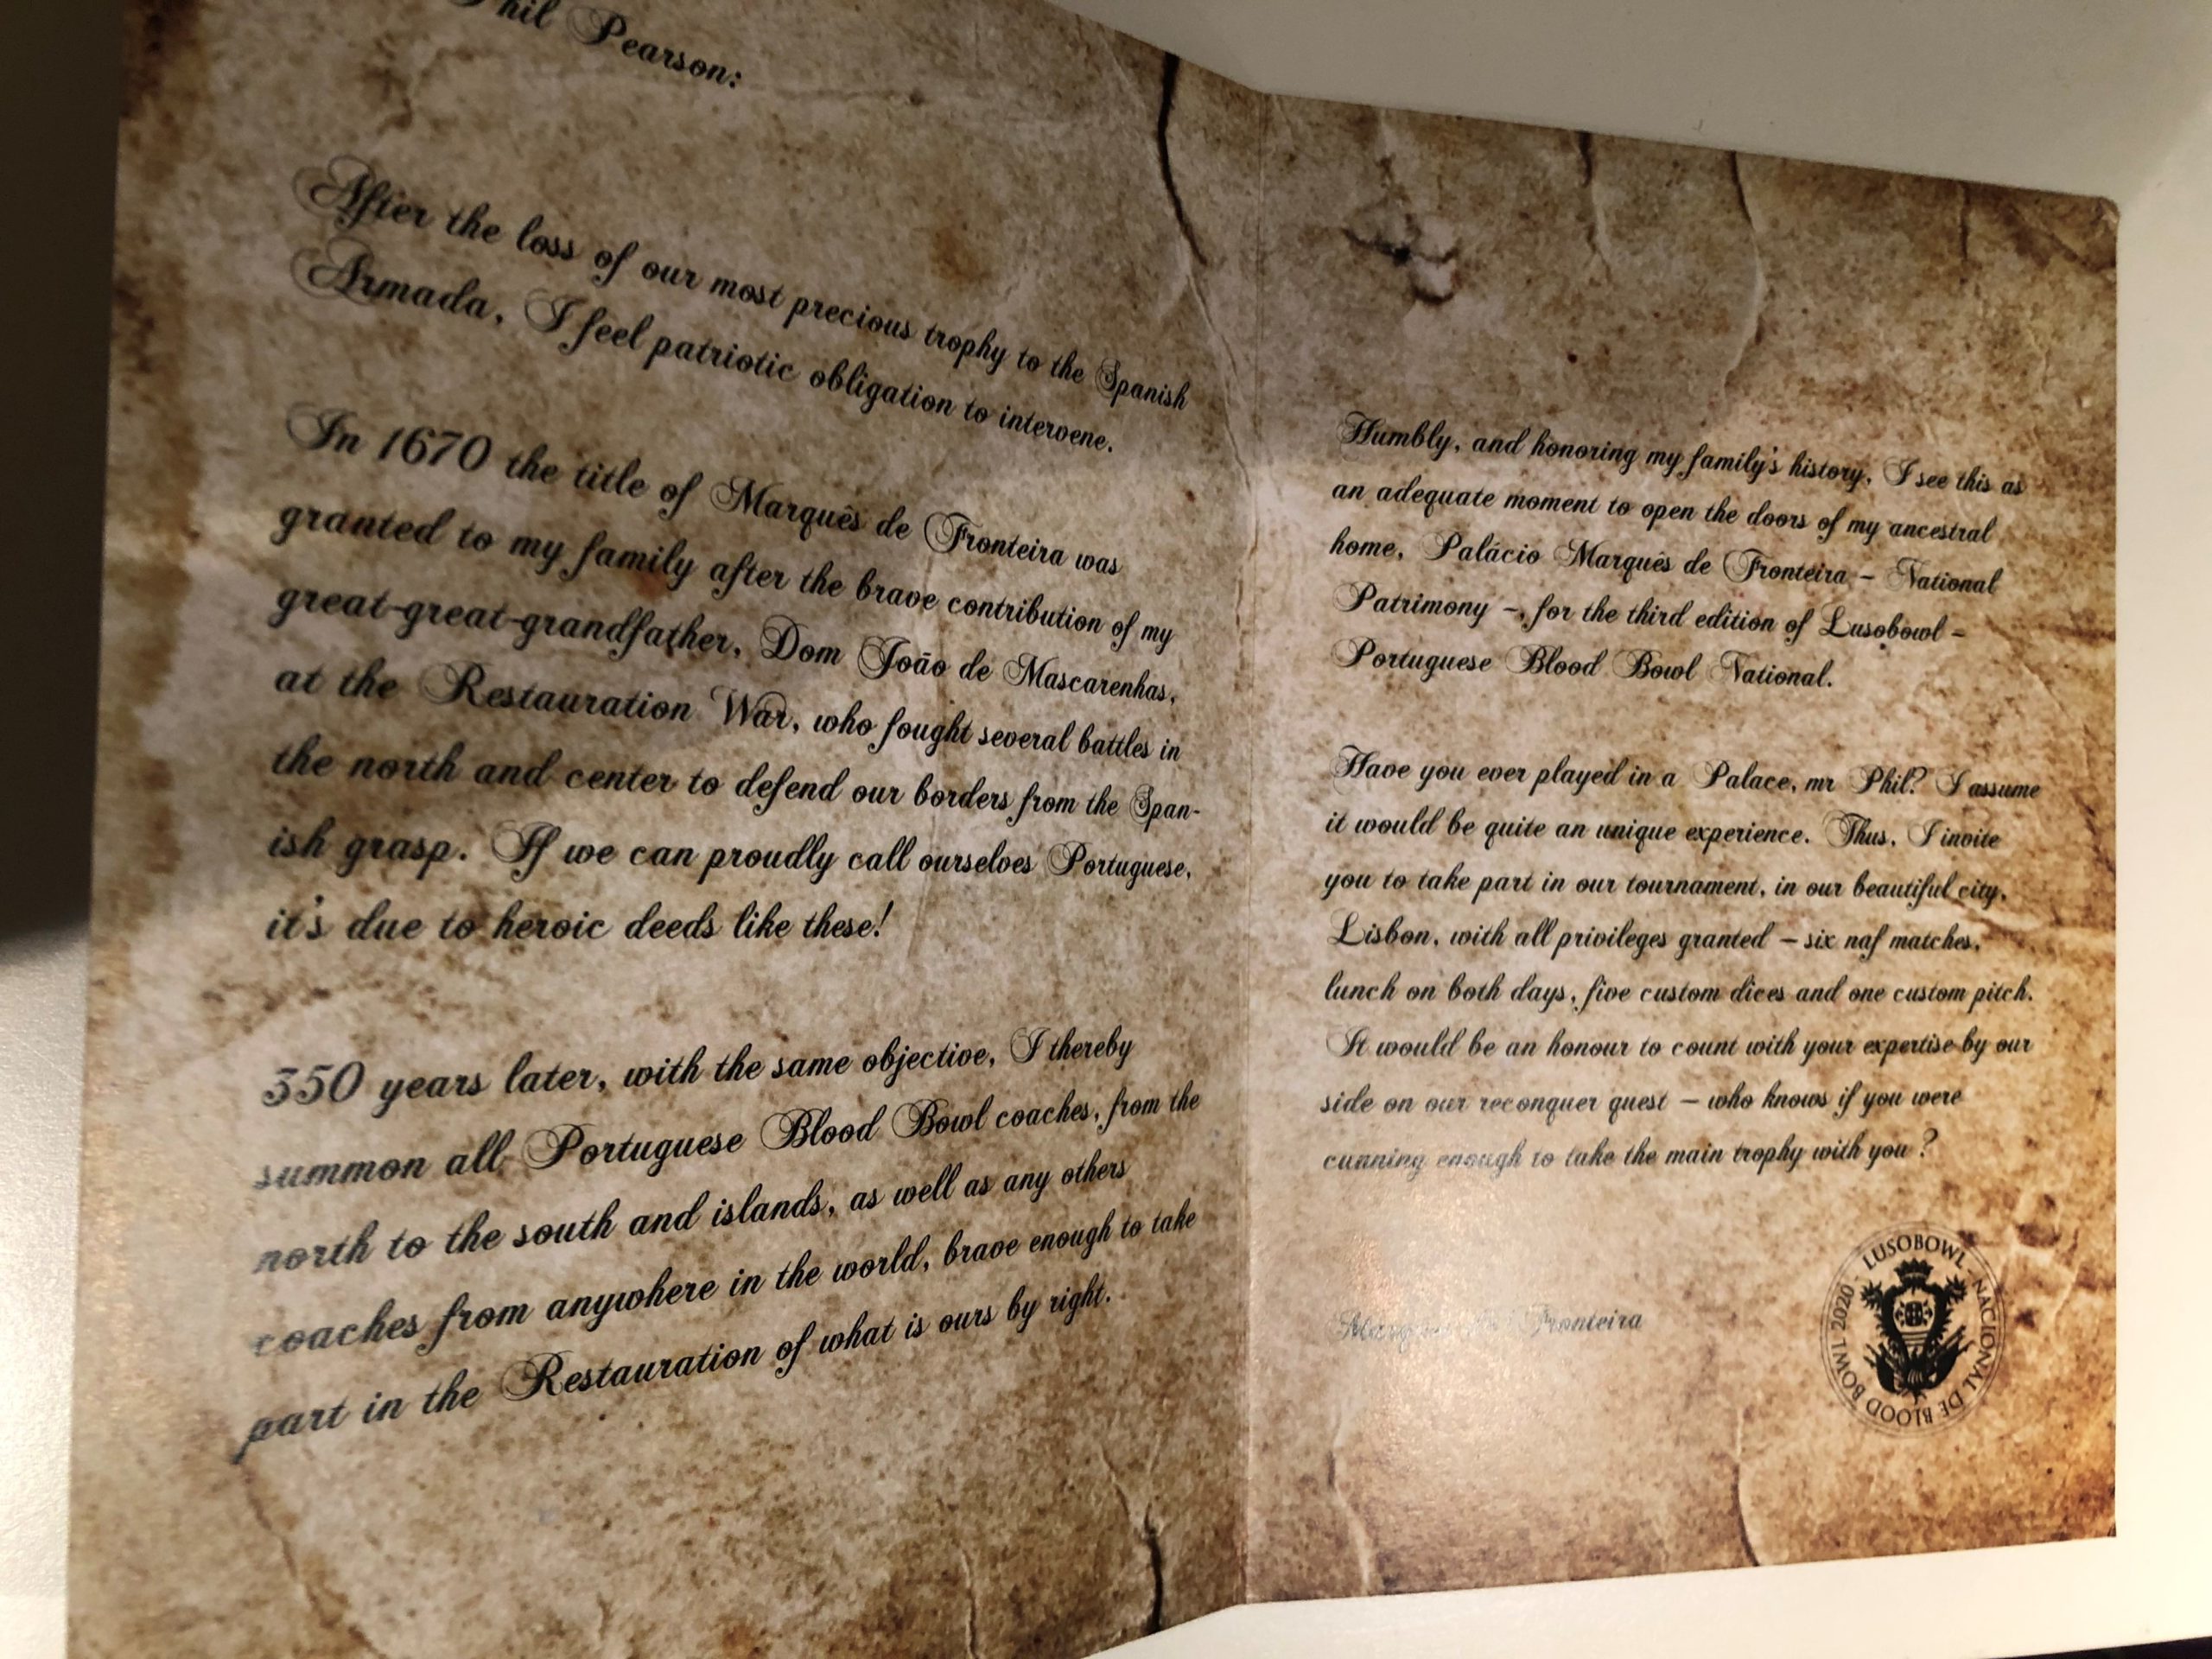 Phil Pearson:
After the loss of our most precious trophy to the Spanish
Armada, I feel patriotic obligation to intervene.
In 1670 the title of Marquês de Fronteira was
granted to my family after the brave contribution of my
great-great-grandfather, Dom João de Mascarenhas,
at the Restauration War, who fought several battles in
the north and center to defend our borders from the Span-
ish grasp. If we can proudly call ourselves Portuguese,
it's due to heroic deeds like these!
350 years later, with the same objective, I thereby
summon all Portuguese Blood Bowl coaches, from the
north to the south and islands, as well as any others
coaches from anywhere in the world, brave enough to take
part in the Restauration of what is ours by right.
Humbly, and honoring my family's history, I see this as
an adequate moment to open the doors of my ancestral
home, Palácio Marquês de Fronteira – National
Patrimony –, for the third edition of Lusobowl –
Portuguese Blood Bowl National.
Have you ever played in a Palace, mr Phil? I assume
it would be quite an unique experience. Thus, I invite
you to take part in our tournament, in our beautiful city,
Lisbon, with all privileges granted – six naf matches,
lunch on both days, five custom dices and one custom pitch.
It would be an honour to count with your expertise by our
side on our reconquer quest – who knows if you were
cunning enough to take the main trophy with you?
Marquês de Fronteira
LUSOBOWL - NACIONAL DE BLOOD BOWL 2020 -